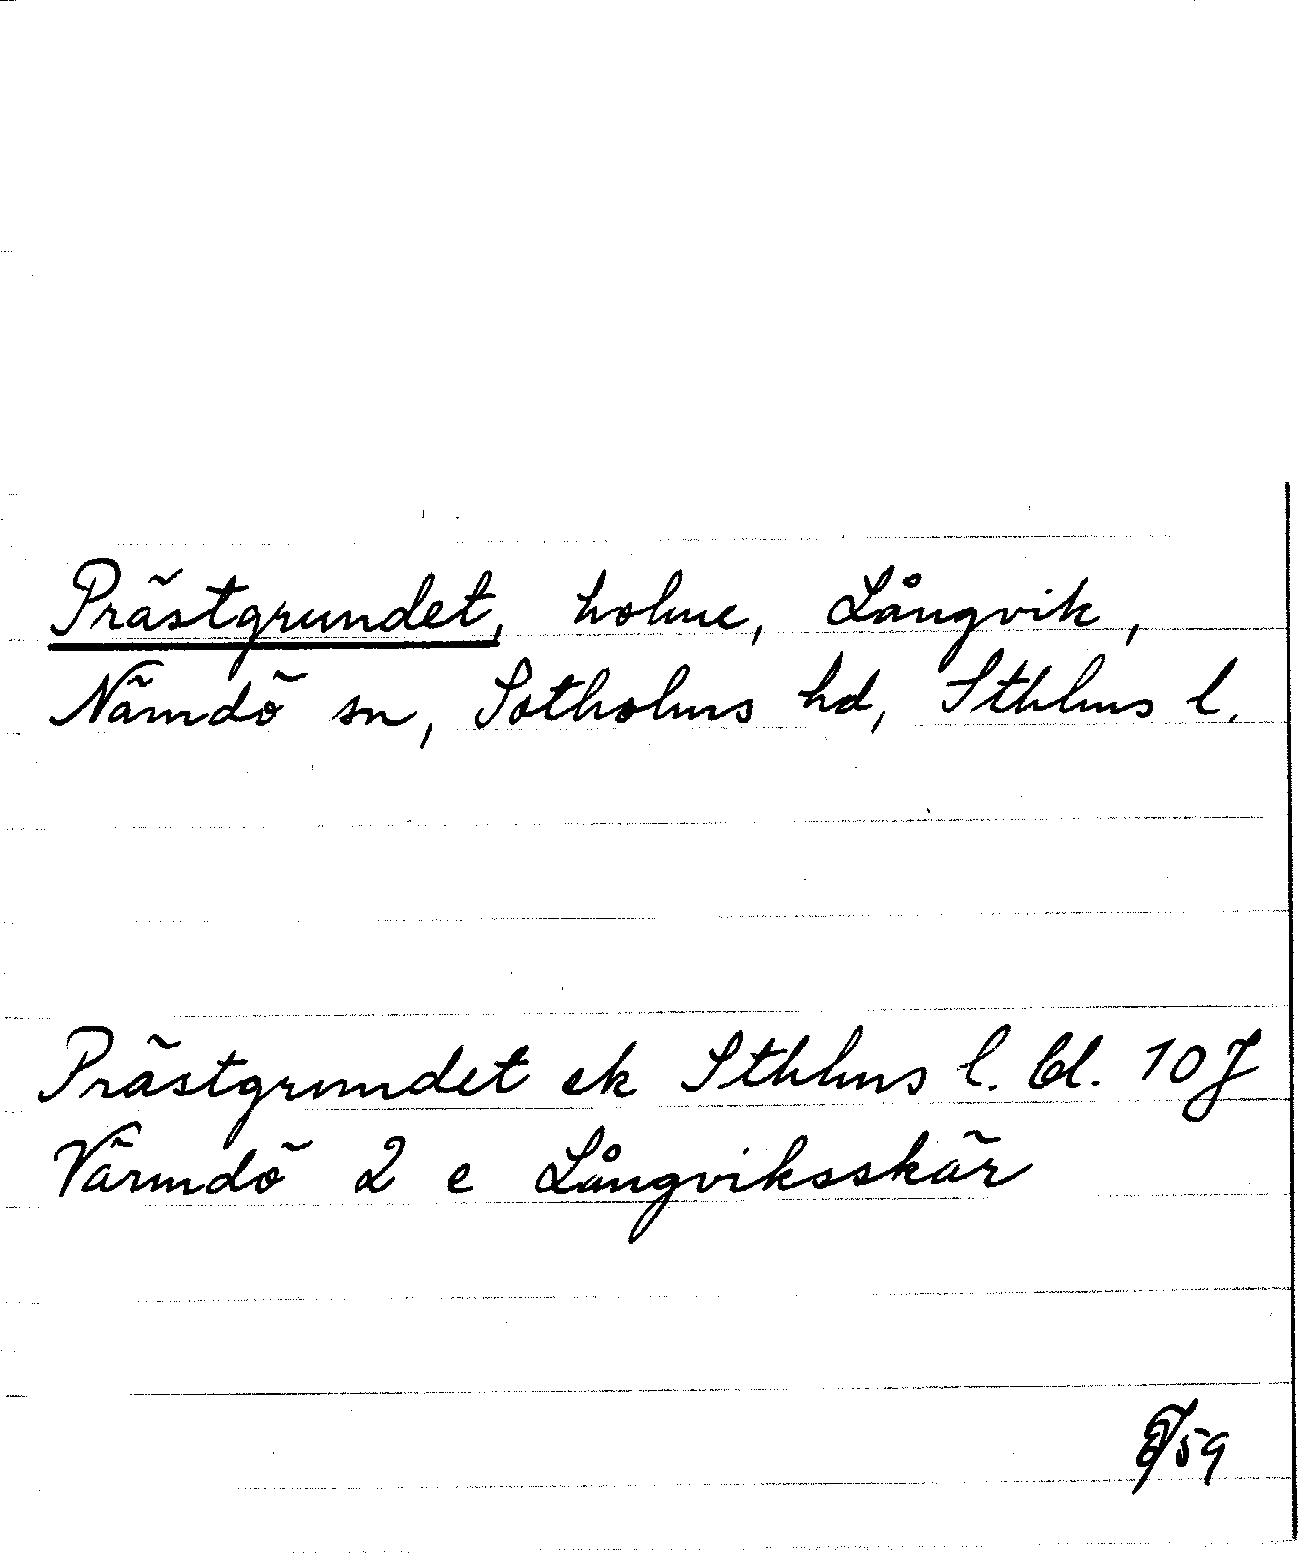 Prästgrundet, holme, Långvik,
Nämdö sn, Sotholms hd, Sthlms l.
Prästgrundet ek Sthlms l. bl. 10 J
Värmdö 2 e Långviksskär
59